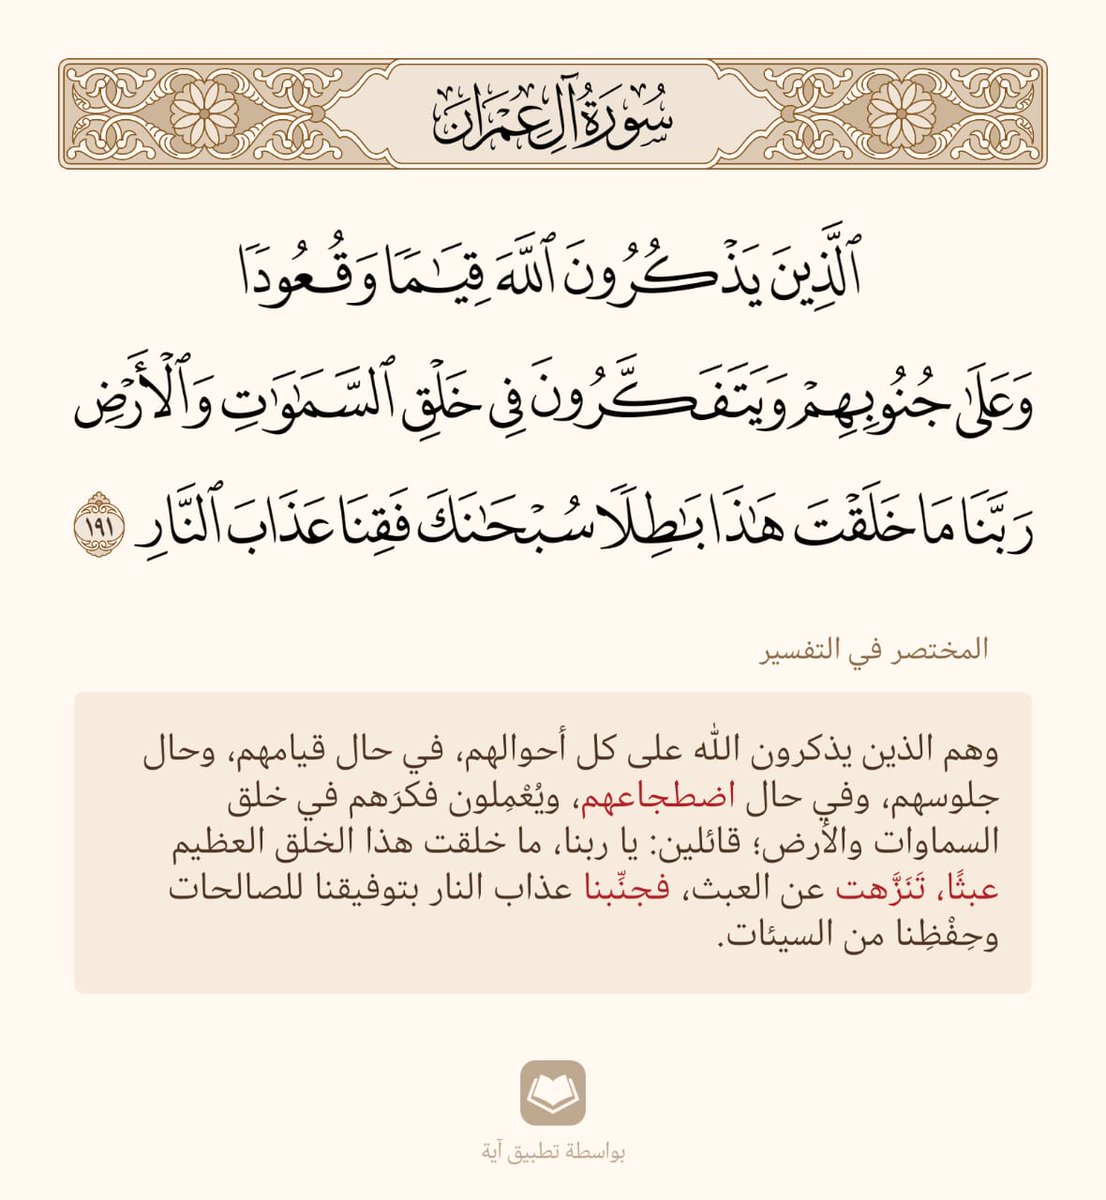 سُورَةُ آلِ عِمْرَانَ
ٱلَّذِينَ يَذْكُرُونَ ٱللَّهَ قِيَٰمًا وَقُعُودًا
وَعَلَىٰ جُنُوبِهِمْ وَيَتَفَكَّرُونَ فِي خَلْقِ ٱلسَّمَٰوَٰتِ وَٱلْأَرْضِ
رَبَّنَا مَا خَلَقْتَ هَٰذَا بَٰطِلًا سُبْحَٰنَكَ فَقِنَا عَذَابَ ٱلنَّارِ ١٩١
المختصر في التفسير
وهم الذين يذكرون الله على كل أحوالهم، في حال قيامهم، وحال
جلوسهم، وفي حال اضطجاعهم، ويُعْمِلون فكرَهم في خلق
السماوات والأرض؛ قائلين: يا ربنا، ما خلقت هذا الخلق العظيم
عبثًا، تَنَزَّهت عن العبث، فجنِّبنا عذاب النار بتوفيقنا للصالحات
وحِفْظِنا من السيئات.
بواسطة تطبيق آية